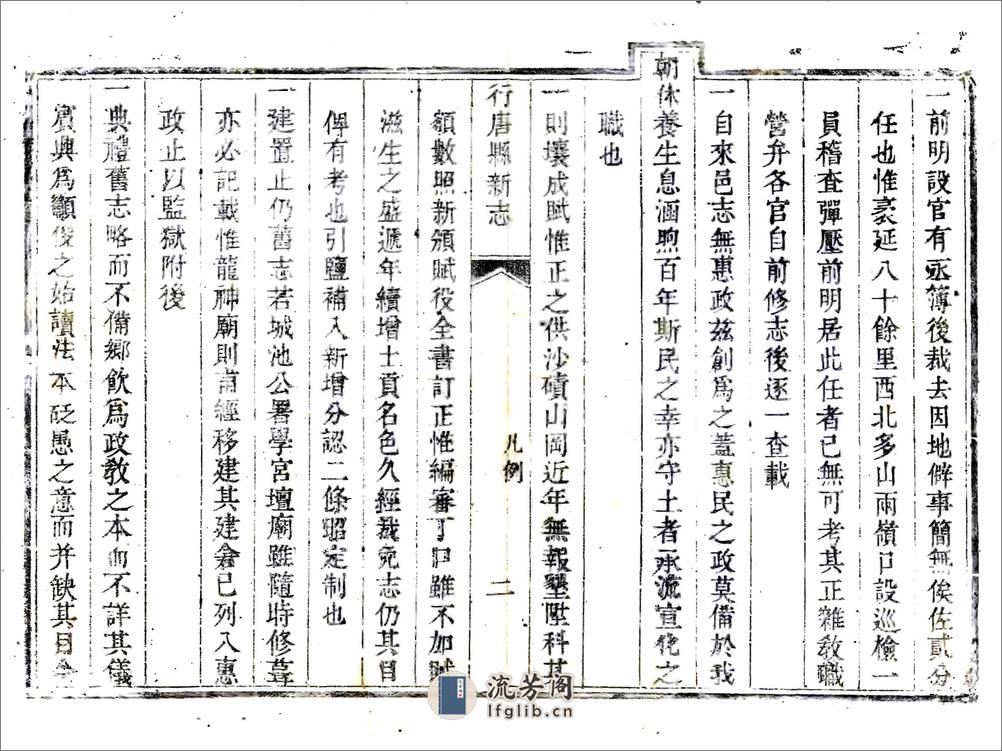 一前明設官有丞簿後裁去因地僻事簡無俟佐貳分
任也惟豪延八十餘里西北多山兩嶺口設巡檢一
員稽查彈壓前明居此任者已無可考其正雜敎職
營弁各官自前修志後逐一查載
一自來邑志無惠政兹創爲之蓋惠民之政莫備於我
朝休養生息涵煦百年斯民之幸亦守土者承流宣化之
職也
一則壤成賦惟正之供沙磧山岡近年無報墾陞科其
行唐縣新志 凡例 二
額數照新頒賦役全書訂正惟編審丁口雖不加賦
滋生之盛遞年續增土貢名色久經裁免志仍其目
俾有考也引鹽補入新增分認二條昭定制也
一建置止仍舊志若城池公署學宮壇廟雖隨時修葺
亦必記載惟龍神廟則甫經移建其建倉已列入惠
政止以監獄附後
一典禮舊志略而不備鄉飲爲政敎之本而不詳其儀
賓興爲籲俊之始讀法本砭愚之意而并缺其目今
流芳阁
lfglib.cn